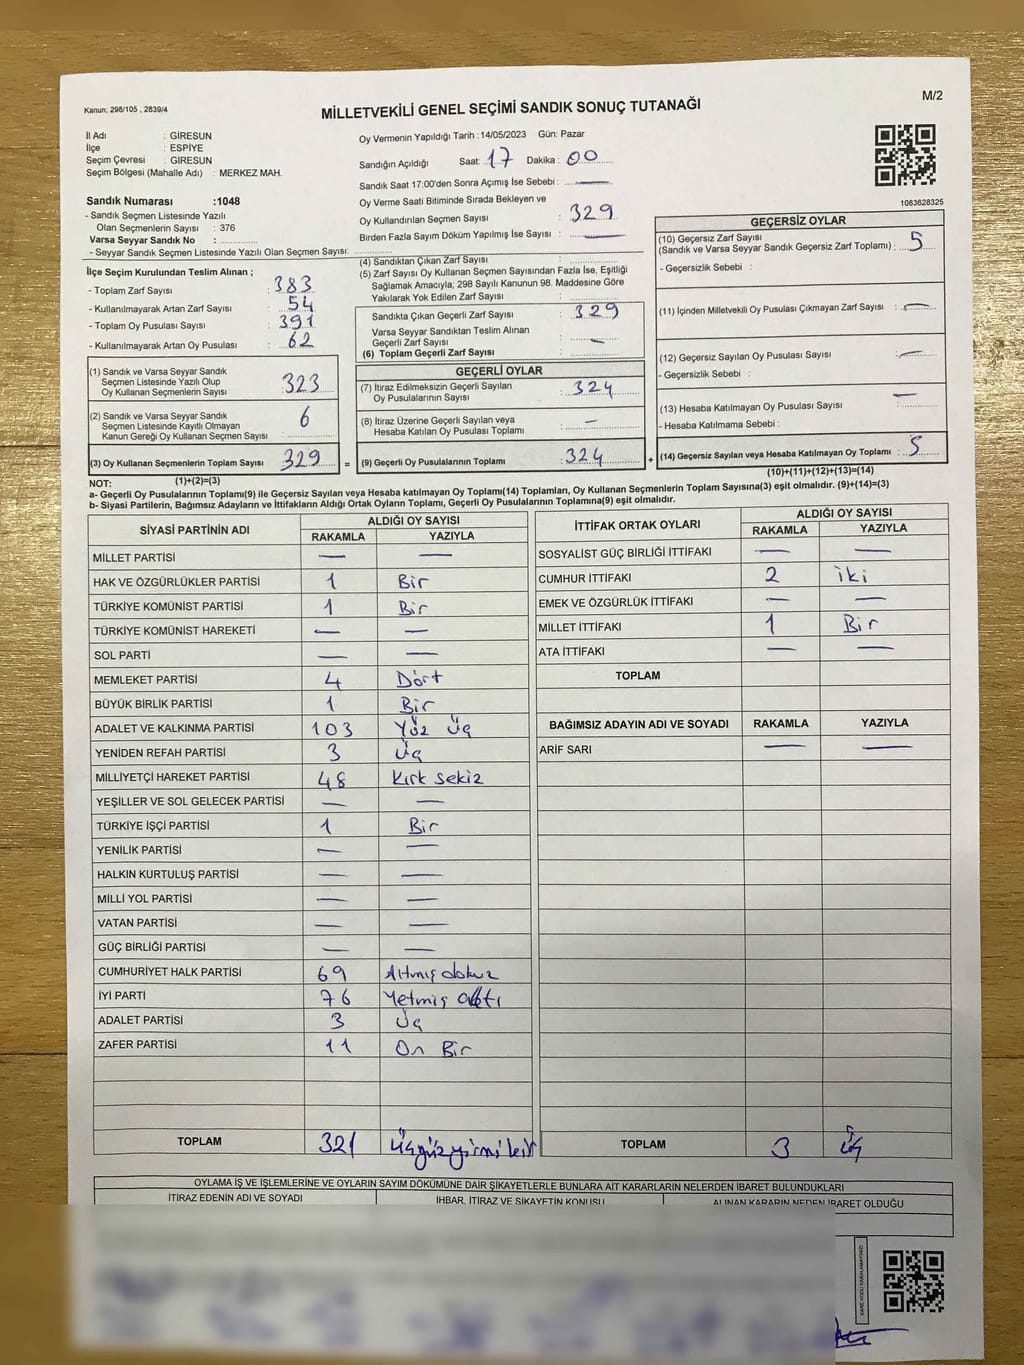 Kanun; 298/105 , 2839/4
MİLLETVEKİLİ GENEL SEÇİMİ SANDIK SONUÇ TUTANAĞI
M/2
İl Adı : GİRESUN
İlçe : ESPİYE
Seçim Çevresi : GİRESUN
Seçim Bölgesi (Mahalle Adı) : MERKEZ MAH.
Sandık Numarası :1048
- Sandık Seçmen Listesinde Yazılı
Olan Seçmenlerin Sayısı : 376
Varsa Seyyar Sandık No :
- Seyyar Sandık Seçmen Listesinde Yazılı Olan Seçmen Sayısı:
Oy Vermenin Yapıldığı Tarih :14/05/2023 Gün: Pazar
Sandığın Açıldığı Saat: 17 Dakika : 00
Sandık Saat 17:00'den Sonra Açımış İse Sebebi : —
Oy Verme Saati Bitiminde Sırada Bekleyen ve
Oy Kullandırılan Seçmen Sayısı : 329
Birden Fazla Sayım Döküm Yapılmış İse Sayısı : —
1083628325
İlçe Seçim Kurulundan Teslim Alınan ;
- Toplam Zarf Sayısı : 383
- Kullanılmayarak Artan Zarf Sayısı : 54
- Toplam Oy Pusulası Sayısı : 391
- Kullanılmayarak Artan Oy Pusulası : 62
(1) Sandık ve Varsa Seyyar Sandık
Seçmen Listesinde Yazılı Olup
Oy Kullanan Seçmenlerin Sayısı : 323
(2) Sandık ve Varsa Seyyar Sandık
Seçmen Listesinde Kayıtlı Olmayan
Kanun Gereği Oy Kullanan Seçmen Sayısı : 6
(3) Oy Kullanan Seçmenlerin Toplam Sayısı : 329
(1)+(2)=(3)
(4) Sandıktan Çıkan Zarf Sayısı :
(5) Zarf Sayısı Oy Kullanan Seçmen Sayısından Fazla İse, Eşitliği
Sağlamak Amacıyla; 298 Sayılı Kanunun 98. Maddesine Göre
Yakılarak Yok Edilen Zarf Sayısı :
Sandıkta Çıkan Geçerli Zarf Sayısı : 329
Varsa Seyyar Sandıktan Teslim Alınan
Geçerli Zarf Sayısı : —
(6) Toplam Geçerli Zarf Sayısı :
GEÇERLİ OYLAR
(7) İtiraz Edilmeksizin Geçerli Sayılan
Oy Pusulalarının Sayısı : 324
(8) İtiraz Üzerine Geçerli Sayılan veya
Hesaba Katılan Oy Pusulası Toplamı : —
= (9) Geçerli Oy Pusulalarının Toplamı : 324 +
GEÇERSİZ OYLAR
(10) Geçersiz Zarf Sayısı
(Sandık ve Varsa Seyyar Sandık Geçersiz Zarf Toplamı) : 5
- Geçersizlik Sebebi :
(11) İçinden Milletvekili Oy Pusulası Çıkmayan Zarf Sayısı : —
(12) Geçersiz Sayılan Oy Pusulası Sayısı : —
- Geçersizlik Sebebi :
(13) Hesaba Katılmayan Oy Pusulası Sayısı : —
- Hesaba Katılmama Sebebi :
(14) Geçersiz Sayılan veya Hesaba Katılmayan Oy Toplamı : 5
(10)+(11)+(12)+(13)=(14)
NOT:
a- Geçerli Oy Pusulaları Toplamı(9) ile Geçersiz Sayılan veya Hesaba katılmayan Oy Toplamı(14) Toplamları, Oy Kullanan Seçmenlerin Toplam Sayısına(3) eşit olmalıdır. (9)+(14)=(3)
b- Siyasi Partilerin, Bağımsız Adayların ve İttifakların Aldığı Ortak Oyların Toplamı, Geçerli Oy Pusulalarının Toplamına(9) eşit olmalıdır.
SİYASİ PARTİNİN ADI ALDIĞI OY SAYISI
RAKAMLA YAZIYLA
MİLLET PARTİSİ — —
HAK VE ÖZGÜRLÜKLER PARTİSİ 1 Bir
TÜRKİYE KOMÜNİST PARTİSİ 1 Bir
TÜRKİYE KOMÜNİST HAREKETİ — —
SOL PARTİ — —
MEMLEKET PARTİSİ 4 Dört
BÜYÜK BİRLİK PARTİSİ 1 Bir
ADALET VE KALKINMA PARTİSİ 103 Yüz üç
YENİDEN REFAH PARTİSİ 3 üç
MİLLİYETÇİ HAREKET PARTİSİ 48 Kırk sekiz
YEŞİLLER VE SOL GELECEK PARTİSİ — —
TÜRKİYE İŞÇİ PARTİSİ 1 Bir
YENİLİK PARTİSİ — —
HALKIN KURTULUŞ PARTİSİ — —
MİLLİ YOL PARTİSİ — —
VATAN PARTİSİ — —
GÜÇ BİRLİĞİ PARTİSİ — —
CUMHURİYET HALK PARTİSİ 69 Altmış dokuz
İYİ PARTİ 76 Yetmiş altı
ADALET PARTİSİ 3 üç
ZAFER PARTİSİ 11 On Bir
TOPLAM 321 üçyüzyirmibir
İTTİFAK ORTAK OYLARI ALDIĞI OY SAYISI
RAKAMLA YAZIYLA
SOSYALİST GÜÇ BİRLİĞİ İTTİFAKI — —
CUMHUR İTTİFAKI 2 iki
EMEK VE ÖZGÜRLÜK İTTİFAKI — —
MİLLET İTTİFAKI 1 Bir
ATA İTTİFAKI — —
TOPLAM
BAĞIMSIZ ADAYIN ADI VE SOYADI RAKAMLA YAZIYLA
ARİF SARI — —
TOPLAM 3 üç
OYLAMA İŞ VE İŞLEMLERİNE VE OYLARIN SAYIM DÖKÜMÜNE DAİR ŞİKAYETLERLE BUNLARA AİT KARARLARIN NELERDEN İBARET BULUNDUKLARI
İTİRAZ EDENİN ADI VE SOYADI İHBAR, İTİRAZ VE ŞİKAYETİN KONUSU ALINAN KARARIN NEDEN İBARET OLDUĞU
KARE KODU KARALAMAYINIZ!